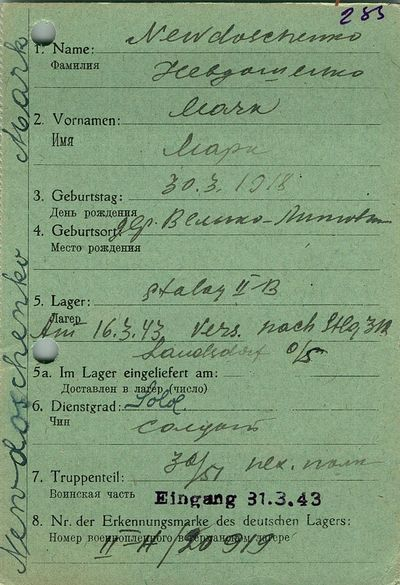 283
1. Name: Newdoschenko
Фамилия Невдошенко
2. Vornamen: Mark
Имя Марк
3. Geburtstag: 30.3.1918
День рождения
4. Geburtsort: дер. Велико-
Место рождения
5. Lager: Stalag II-B
Лагерь
Am 16.3.43 Vers. nach Stlg
Lamsdorf O/S
5a. Im Lager eingeliefert am:
Доставлен в лагерь (число)
6. Dienstgrad: Sold.
Чин солдат
7. Truppenteil: пех. полк
Воинская часть Eingang 31.3.43
8. Nr. der Erkennungsmarke des deutschen Lagers:
Номер военнопленного в германском лагере
Newdoschenko Mark